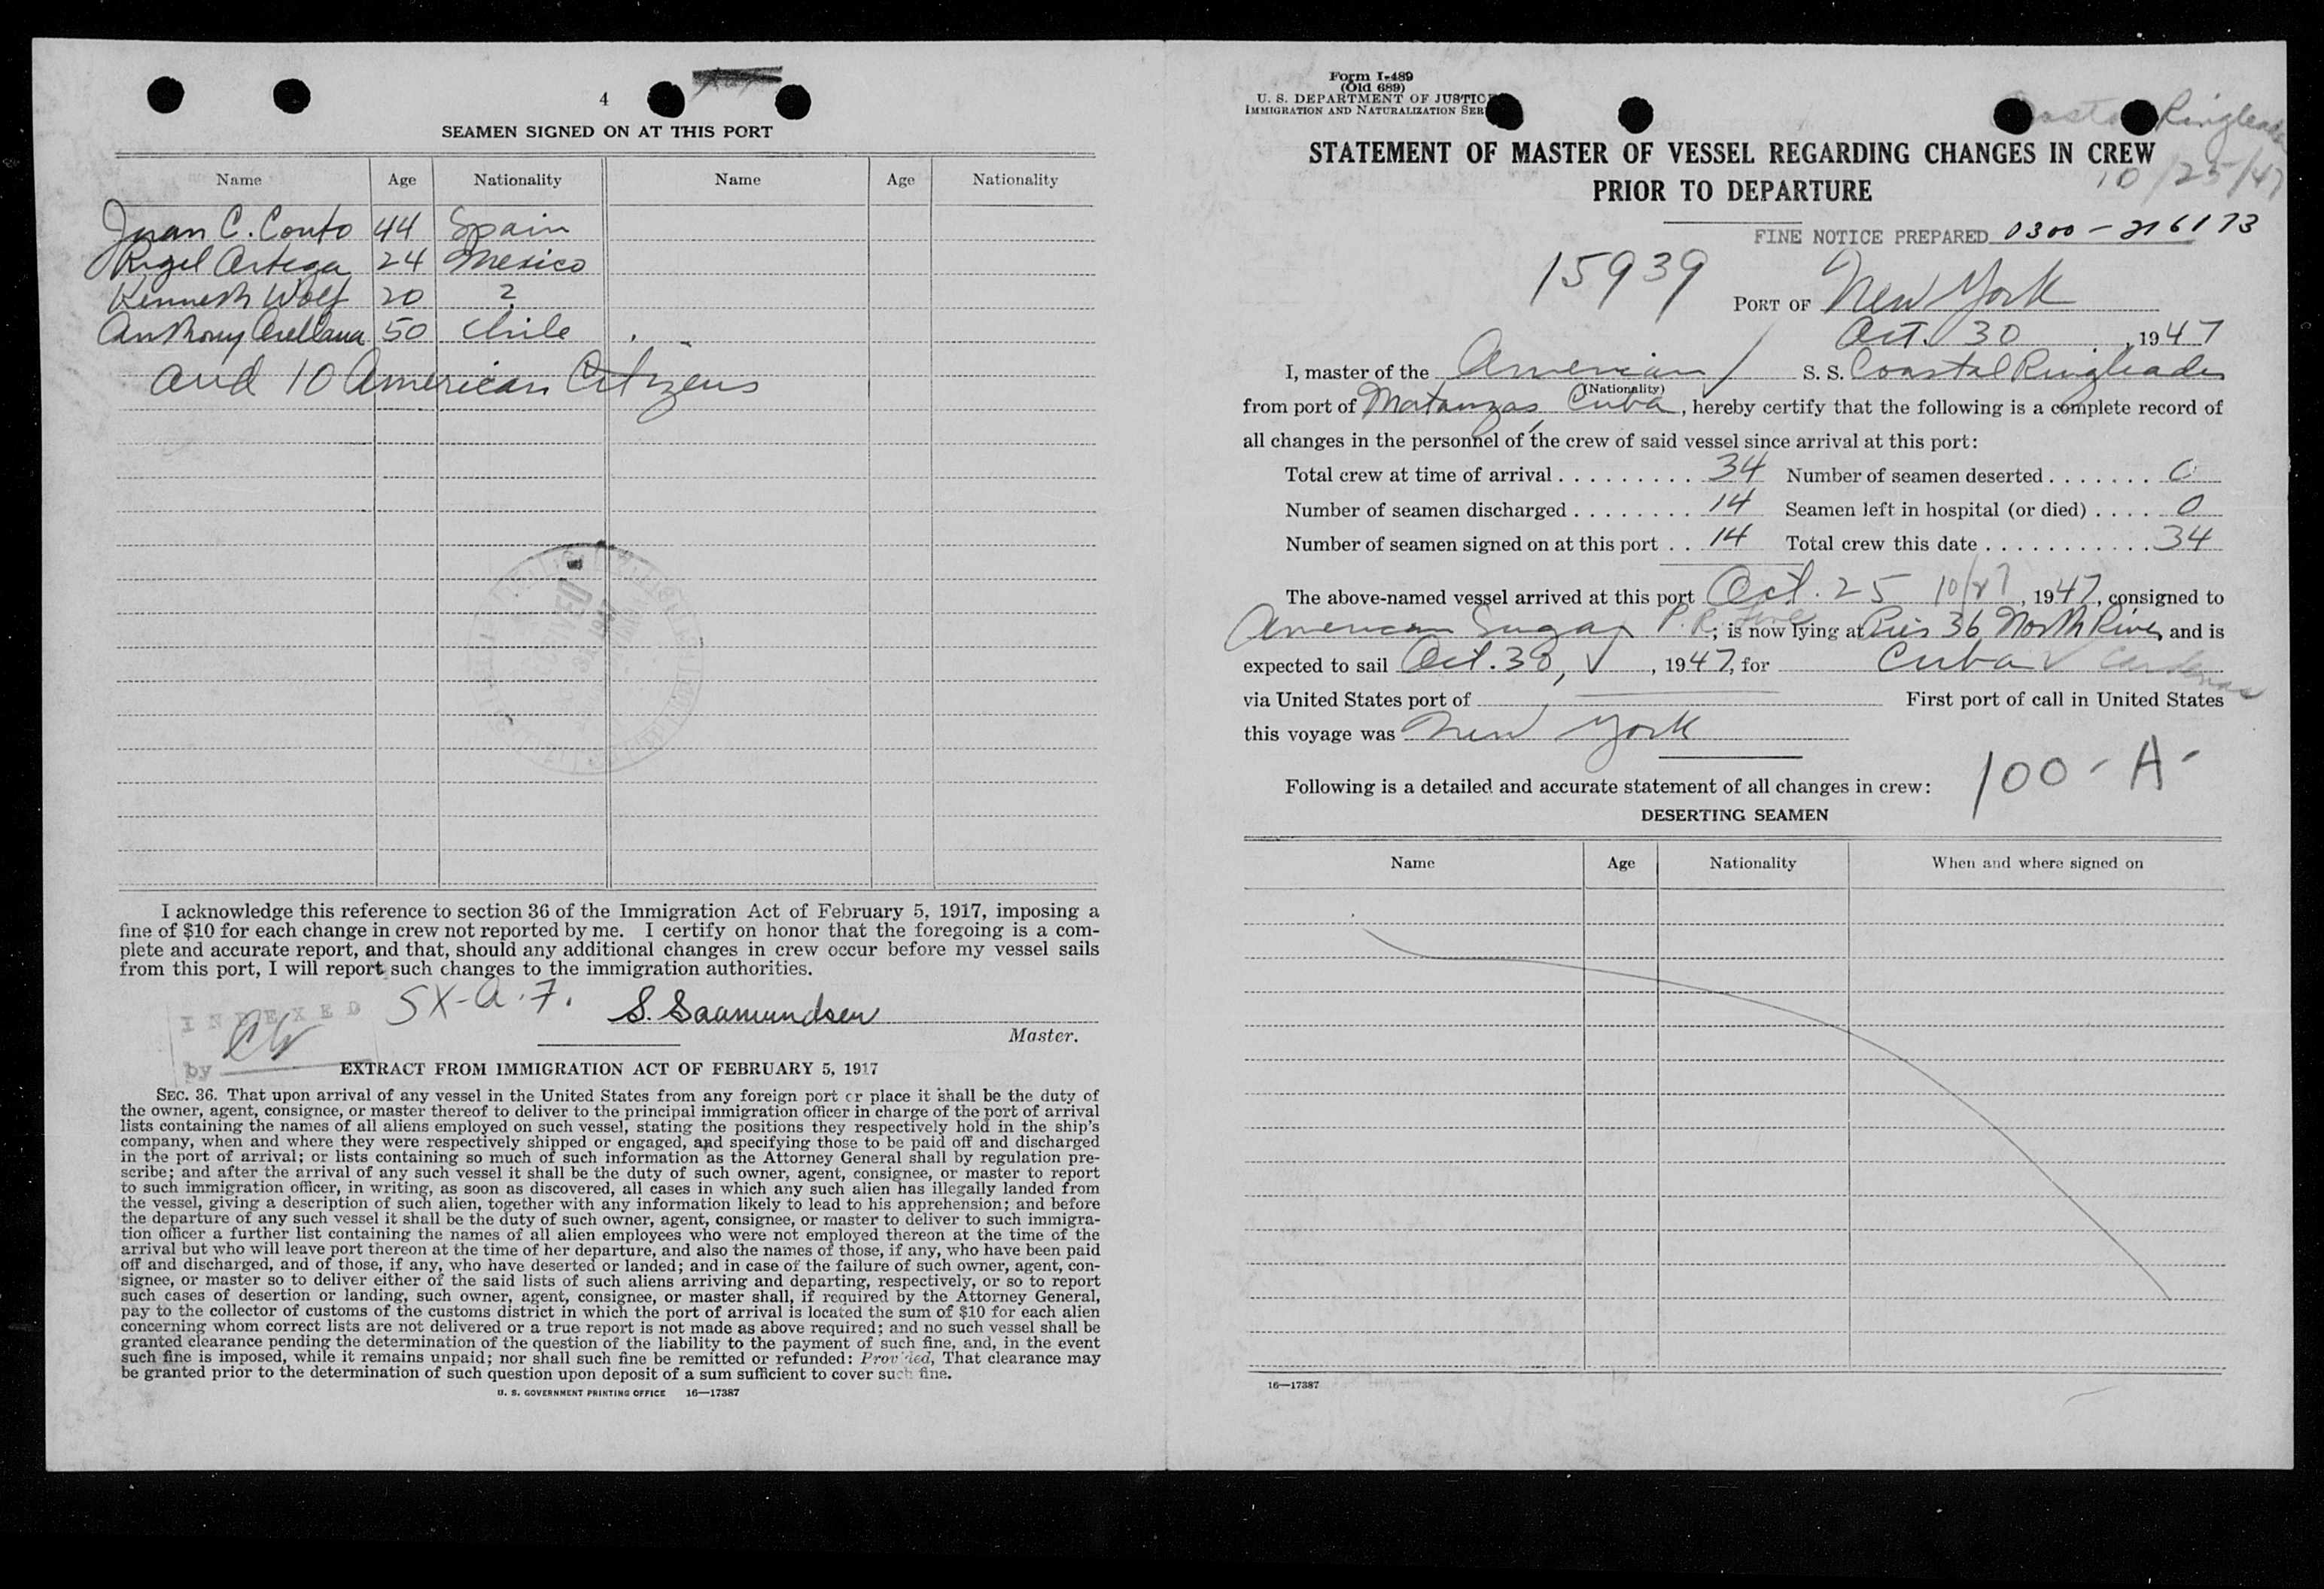 4
SEAMEN SIGNED ON AT THIS PORT
Name Age Nationality Name Age Nationality
Juan C. Couto 44 Spain
Rigel Artega 24 Mexico
Kenneth Wolf 20 ?
Anthony Arellana 50 Chile
and 10 American Citizens
I acknowledge this reference to section 36 of the Immigration Act of February 5, 1917, imposing a
fine of $10 for each change in crew not reported by me. I certify on honor that the foregoing is a com-
plete and accurate report, and that, should any additional changes in crew occur before my vessel sails
from this port, I will report such changes to the immigration authorities.
SX-a.7. S. Saamundsen
Master.
INDEXED
by
EXTRACT FROM IMMIGRATION ACT OF FEBRUARY 5, 1917
SEC. 36. That upon arrival of any vessel in the United States from any foreign port or place it shall be the duty of
the owner, agent, consignee, or master thereof to deliver to the principal immigration officer in charge of the port of arrival
lists containing the names of all aliens employed on such vessel, stating the positions they respectively hold in the ship's
company, when and where they were respectively shipped or engaged, and specifying those to be paid off and discharged
in the port of arrival; or lists containing so much of such information as the Attorney General shall by regulation pre-
scribe; and after the arrival of any such vessel it shall be the duty of such owner, agent, consignee, or master to report
to such immigration officer, in writing, as soon as discovered, all cases in which any such alien has illegally landed from
the vessel, giving a description of such alien, together with any information likely to lead to his apprehension; and before
the departure of any such vessel it shall be the duty of such owner, agent, consignee, or master to deliver to such immigra-
tion officer a further list containing the names of all alien employees who were not employed thereon at the time of the
arrival but who will leave port thereon at the time of her departure, and also the names of those, if any, who have been paid
off and discharged, and of those, if any, who have deserted or landed; and in case of the failure of such owner, agent, con-
signee, or master so to deliver either of the said lists of such aliens arriving and departing, respectively, or so to report
such cases of desertion or landing, such owner, agent, consignee, or master shall, if required by the Attorney General,
pay to the collector of customs of the customs district in which the port of arrival is located the sum of $10 for each alien
concerning whom correct lists are not delivered or a true report is not made as above required; and no such vessel shall be
granted clearance pending the determination of the question of the liability to the payment of such fine, and, in the event
such fine is imposed, while it remains unpaid; nor shall such fine be remitted or refunded: Provided, That clearance may
be granted prior to the determination of such question upon deposit of a sum sufficient to cover such fine.
U. S. GOVERNMENT PRINTING OFFICE 16—17387
Form I-489
(Old 689)
U. S. DEPARTMENT OF JUSTICE
IMMIGRATION AND NATURALIZATION SER
Ringleader
10/25/47
STATEMENT OF MASTER OF VESSEL REGARDING CHANGES IN CREW
PRIOR TO DEPARTURE
FINE NOTICE PREPARED 0300-216173
15939
PORT OF New York
Oct. 30, 1947
I, master of the American S. S. Coastal Ringleader
(Nationality)
from port of Matanzas, Cuba, hereby certify that the following is a complete record of
all changes in the personnel of the crew of said vessel since arrival at this port:
Total crew at time of arrival . . . . . . . . . 34 Number of seamen deserted . . . . . . . 0
Number of seamen discharged . . . . . . . . 14 Seamen left in hospital (or died) . . . . 0
Number of seamen signed on at this port . . 14 Total crew this date . . . . . . . . . . . 34
The above-named vessel arrived at this port Oct. 25 10/27, 1947, consigned to
American Sugar; is now lying at Pier 36 North River, and is
expected to sail Oct. 30, 1947, for Cuba Cardenas
via United States port of First port of call in United States
this voyage was New York
100-A-
Following is a detailed and accurate statement of all changes in crew:
DESERTING SEAMEN
Name Age Nationality When and where signed on
16—17387